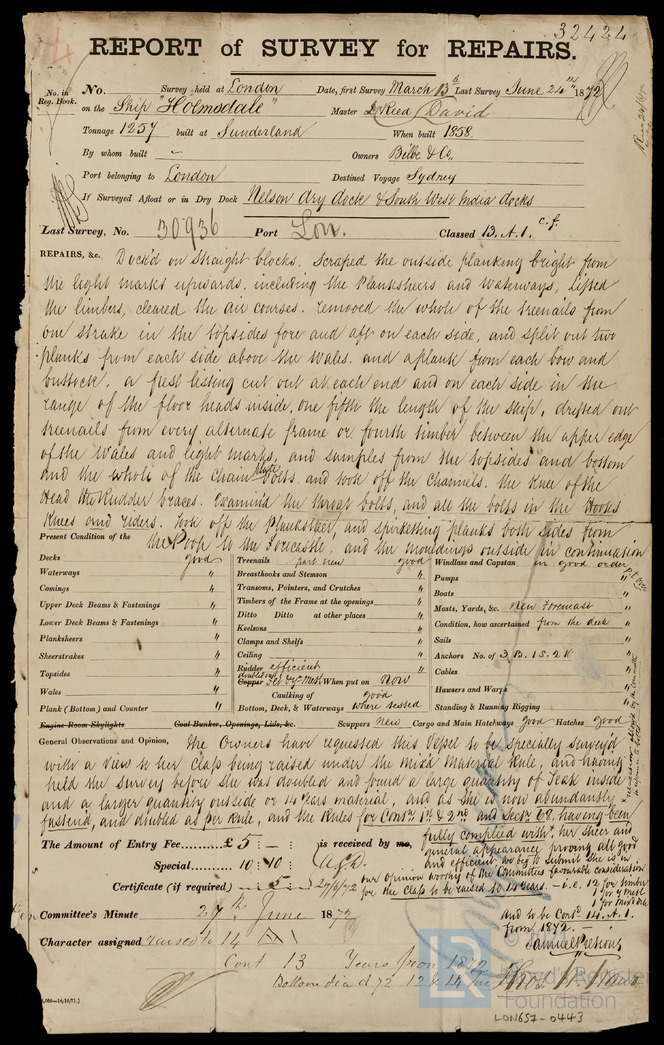 32424
REPORT of SURVEY for REPAIRS.
No. in Reg. Book.
No. Survey held at London Date, first Survey March 13th Last Survey June 24th 1872
on the Ship "Holmsdale" Master David
Tonnage 1257 built at Sunderland When built 1858
By whom built — Owners Bilbe & Co.
Port belonging to London Destined Voyage Sydney
If Surveyed Afloat or in Dry Dock Nelson dry dock & South West India docks
Last Survey, No. 30936 Port Lon. Classed 13.A.1. c.f.
REPAIRS, &c. Dock'd on Straight blocks. Scraped the outside planking bright from
the light marks upwards. including the Planksheers and Waterways, lifted
the limbers, cleared the air courses. removed the whole of the treenails from
one strake in the topsides fore and aft on each side, and split out two
planks from each side above the Wales. and a plank from each bow and
buttock. a fresh listing cut out at each end and on each side in the
range of the floor heads inside, one fifth the length of the ship, dressed out
treenails from every alternate frame or fourth timber between the upper edge
of the Wales and light marks, and samples from the topsides and bottom
and the whole of the chain plate bolts. and took off the Channels. the Knee of the
Head the Rudder braces. Examin'd the throat bolts, and all the bolts in the Hooks
Knees and riders. took off the Planksheer, and spirketting planks both sides from
the Poop to the Forecastle, and the mouldings outside in continuation
Present Condition of the
Decks good
Waterways "
Comings "
Upper Deck Beams & Fastenings "
Lower Deck Beams & Fastenings "
Planksheers "
Sheerstrakes "
Topsides "
Wales "
Plank (Bottom) and Counter "
Engine Room Skylights
Treenails part new good
Breasthooks and Stemson "
Transoms, Pointers, and Crutches "
Timbers of the Frame at the openings "
Ditto Ditto at other places "
Keelsons "
Clamps and Shelfs "
Ceiling "
Rudder efficient "
doubled
Copper When put on Now
Caulking of good
Bottom, Deck, & Waterways where tested
Coal Bunker, Openings, Lids, &c.
Windlass and Capstan in good order
Pumps "
Boats "
Masts, Yards, &c. New Foremast
Condition, how ascertained from the deck
Sails "
Anchors No. of 3.B. 1S. 2K
Cables "
Hawsers and Warps "
Standing & Running Rigging "
Scuppers new Cargo and Main Hatchways good Hatches good
General Observations and Opinion, The Owners have requested this Vessel to be specially survey'd
with a view to her class being raised under the Mix'd Material Rule, and having
held the survey before she was doubled and found a large quantity of Teak inside
and a larger quantity outside or 14 years material, and as she is now abundantly
fasten'd, and doubled as per Rule, and the Rules for Contn. 1st & 2nd and Sectn. 68. having been
fully complied with. her sheer and
general appearance proving all good
and efficient. we beg to submit she is in
our opinion worthy of the Committees favourable consideration
for the class to be raised to 14 years. - i.e. 12 for timber
1 for y. metal
1 for Mix'd Mat.
and to be Contd. 14.A.1.
from 1872.
The Amount of Entry Fee £5 : - : is received by me,
Special 10 : 10 :
Certificate (if required) - : 5 : 27/6/72
Committee's Minute 27th June 1872
Character assigned raised to 14
Cont 13 Years from 1872
Samuel Prescous
Lloyd's Register
Foundation
LON657-0443